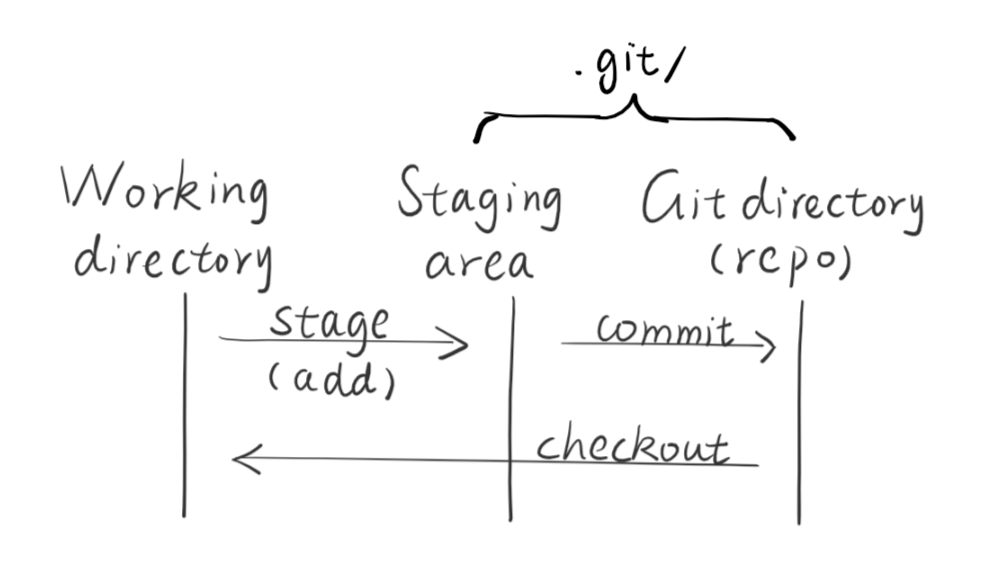 .git/
Working directory
Staging area
Git directory (repo)
stage
(add)
commit
checkout